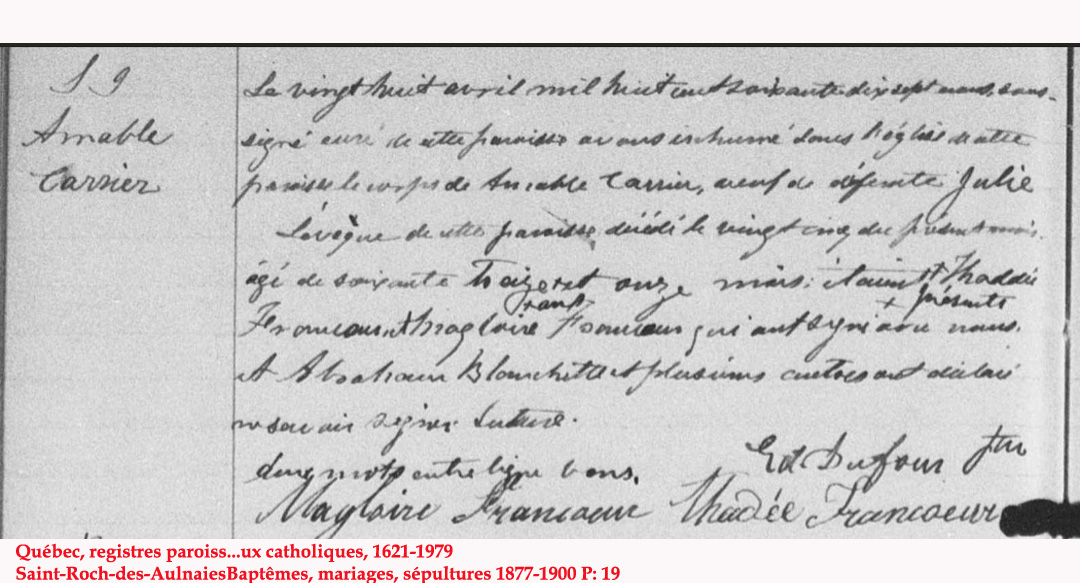 S 9
Amable
Carrier
Le vingt huit avril mil huit cent soixante dix sept nous, sous-
signé curé de cette paroisse avons inhumé dans l'église de cette
paroisse le corps de Amable Carrier, veuf de défunte Julie
Lévêque de cette paroisse décédé le vingt cinq du présent mois.
âgé de soixante treize et onze mois: étaient Thaddée
ans + présents
Francoeur et Magloire Francoeur qui ont signé avec nous.
et Abraham Blanchette et plusieurs autres ont déclaré
ne savoir signer Lecture.
deux mots entre ligne bons.
Ed Dufour ptre
Magloire Francoeur Thadée Francoeur
Québec, registres paroiss...ux catholiques, 1621-1979
Saint-Roch-des-AulnaiesBaptêmes, mariages, sépultures 1877-1900 P: 19